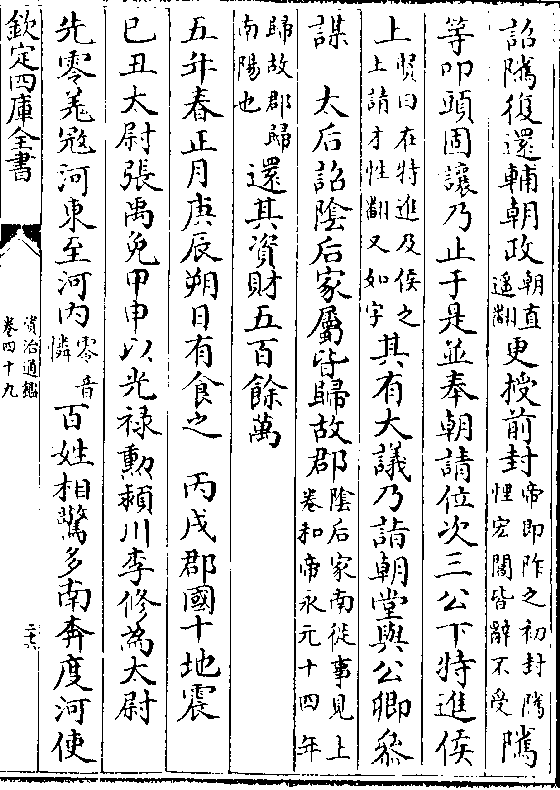 詔隲復還輔朝政朝直遥翻更授前封帝即阼之初封隲悝宏閶皆辭不受隲
等叩頭固讓乃止于是並奉朝請位次三公下特進侯
上賢曰在特進及侯之上請才性翻又如字其有大議乃詣朝堂與公卿參
謀　太后詔陰后家屬皆歸故郡陰后家南徙事見上卷和帝永元十四年
歸故郡歸南陽也還其資財五百餘萬
五年春正月庚辰朔日有食之　丙戌郡國十地震
巳丑太尉張禹免甲申以光禄勲潁川李修為太尉
先零羌宼河東至河内零音憐百姓相驚多南奔度河使
欽定四庫全書
資治通鑑
卷四十九
二六